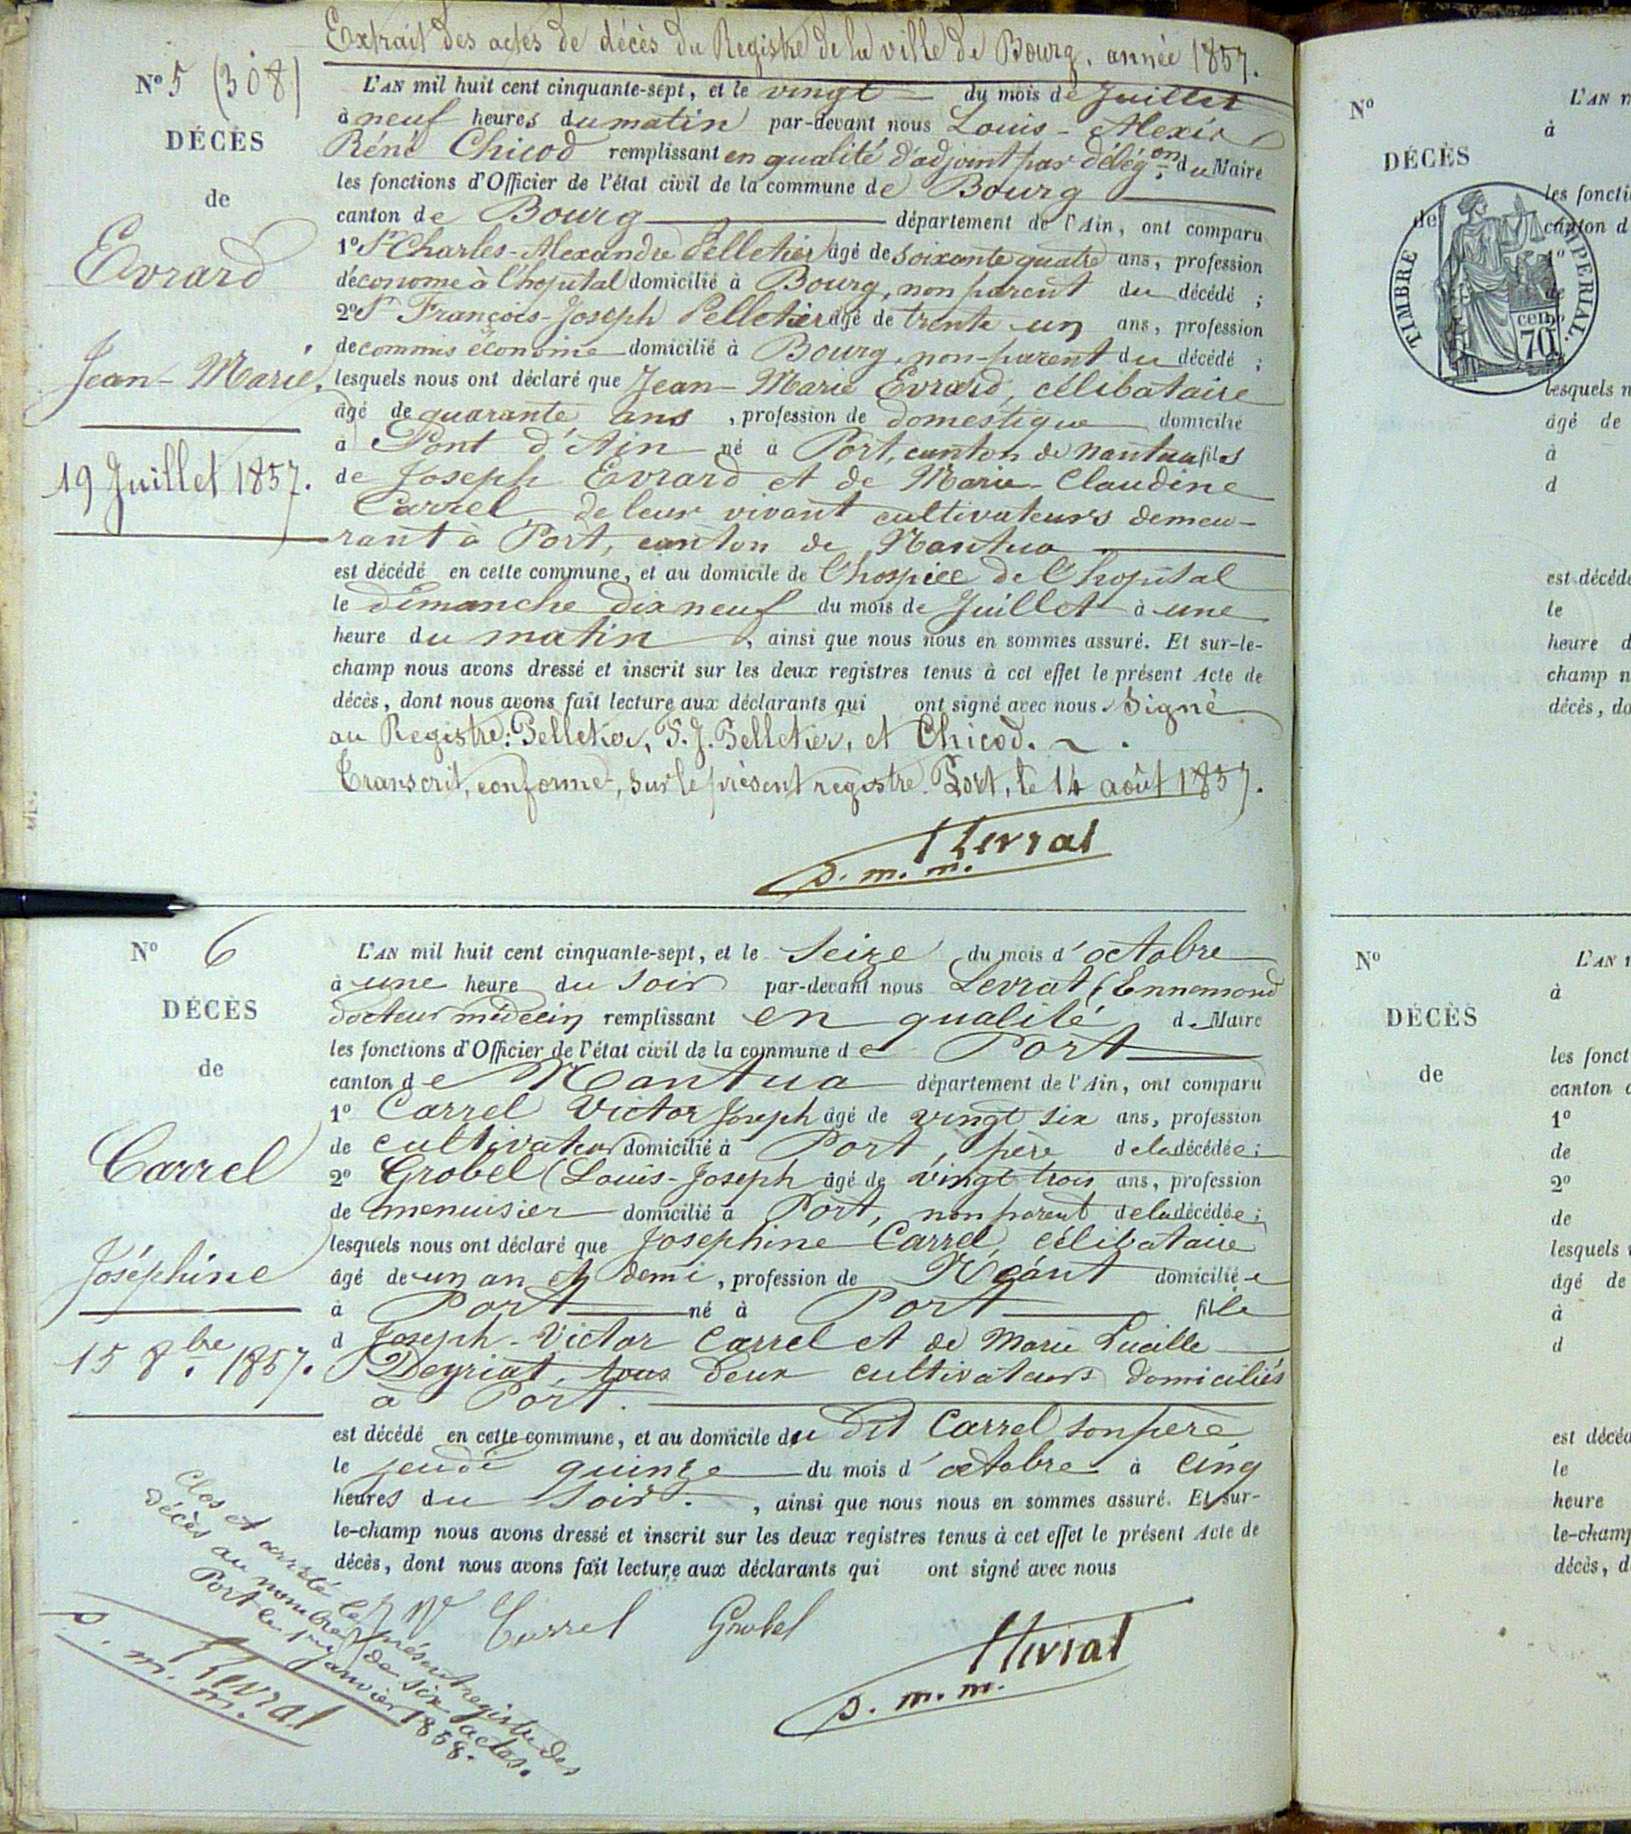 Extrait des actes de décès du Registre de la ville de Bourg, année 1857.
N° 5 (308)
DÉCÈS
de
Evrard
Jean-Marie.
19 Juillet 1857.
L'AN mil huit cent cinquante-sept, et le vingt du mois de Juillet
à neuf heures du matin par-devant nous Louis-Alexis
Réné Chicod remplissant en qualité d'adjoint par délég.on du Maire
les fonctions d'Officier de l'état civil de la commune de Bourg
canton de Bourg département de l'Ain, ont comparu
1° Sr Charles-Alexandre Pelletier âgé de soixante quatre ans, profession
d'économe à l'hopital domicilié à Bourg, non parent du décédé ;
2° Sr François-Joseph Pelletier âgé de trente un ans, profession
de commis économe domicilié à Bourg, non-parent du décédé ;
lesquels nous ont déclaré que Jean-Marie Evrard, célibataire
âgé de quarante ans , profession de domestique domicilié
à Pont d'Ain né à Port, canton de Nantua fils
de Joseph Evrard et de Marie-Claudine
Carrel de leur vivant cultivateurs demeu-
rant à Port, canton de Nantua
est décédé en cette commune, et au domicile de l'hospice de l'hopital
le dimanche dix neuf du mois de Juillet à une
heure du matin , ainsi que nous nous en sommes assuré. Et sur-le-
champ nous avons dressé et inscrit sur les deux registres tenus à cet effet le présent Acte de
décès, dont nous avons fait lecture aux déclarants qui ont signé avec nous. Signé
au Registre: Pelletier, F. J. Pelletier, et Chicod.
Transcrit, conforme, sur le présent registre. Port, le 14 août 1857.
Levrat
d. m. m.
N° 6
DÉCÈS
de
Carrel
Joséphine
15 8bre 1857.
L'AN mil huit cent cinquante-sept, et le Seize du mois d'octobre
à une heure du soir par-devant nous Levrat (Ennemond
docteur médecin remplissant en qualité de Maire
les fonctions d'Officier de l'état civil de la commune de Port
canton de Nantua département de l'Ain, ont comparu
1° Carrel Victor Joseph âgé de vingt six ans, profession
de cultivateur domicilié à Port, père de la décédée ;
2° Grobel (Louis-Joseph âgé de vingt trois ans, profession
de menuisier domicilié à Port, non parent de la décédée ;
lesquels nous ont déclaré que Josephine Carrel, célibataire
âgé de un an et demi , profession de Néant domiciliée
à Port né à Port fille
d Joseph-Victor Carrel et de Marie Lucille
Deyriat, tous deux cultivateurs domiciliés
à Port.
est décédé en cette commune, et au domicile du dit Carrel son père
le jeudi quinze du mois d'octobre à cinq
heures du soir. , ainsi que nous nous en sommes assuré. Et sur-
le-champ nous avons dressé et inscrit sur les deux registres tenus à cet effet le présent Acte de
décès, dont nous avons fait lecture aux déclarants qui ont signé avec nous
Carrel Grobel
Levrat
d. m. m.
Clos et arrêté le présent registre des
décès au nombre de six actes.
Port le 1er janvier 1858.
Levrat
d. m. m.
N° L'AN
à
DÉCÈS
de
les foncti
canton d
1°
de
TIMBRE IMPERIAL.
cent. 70
lesquels n
âgé de
à
d
est décédé
le
heure d
champ n
décès, do
N° L'AN
à
DÉCÈS
de
les fonct
canton d
1°
de
2°
de
lesquels
âgé de
à
d
est décéd
le
heure
le-champ
décès, d